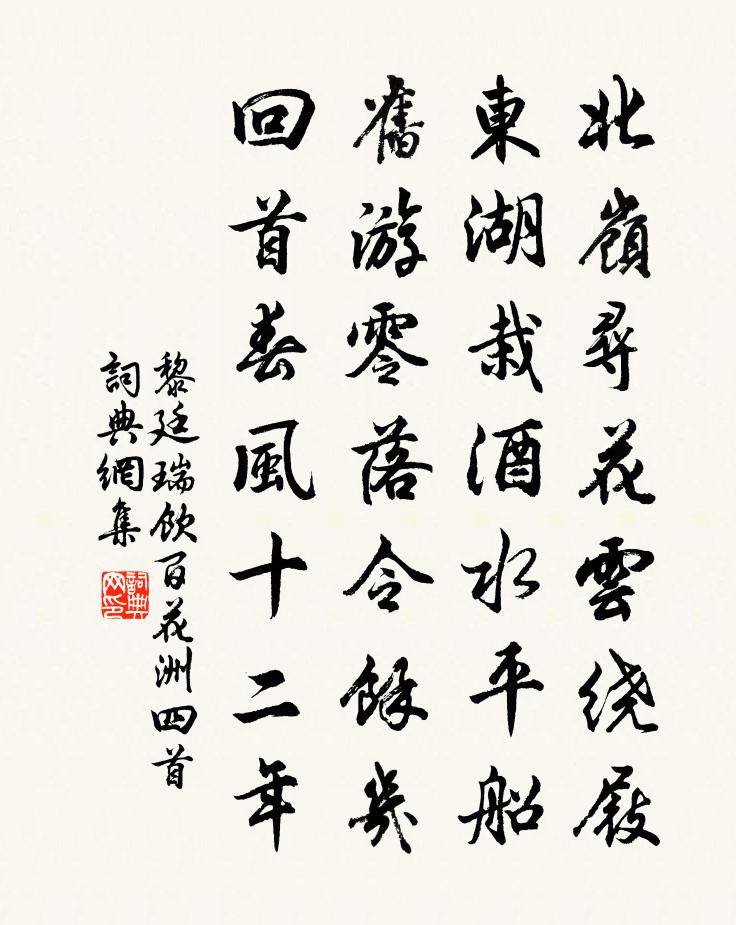 北嶺尋花雲繞屐
東湖栽酒水平船
舊游零落今餘幾
回首春風十二年
黎廷瑞飲百花洲四首
詞典網集
詞典网印